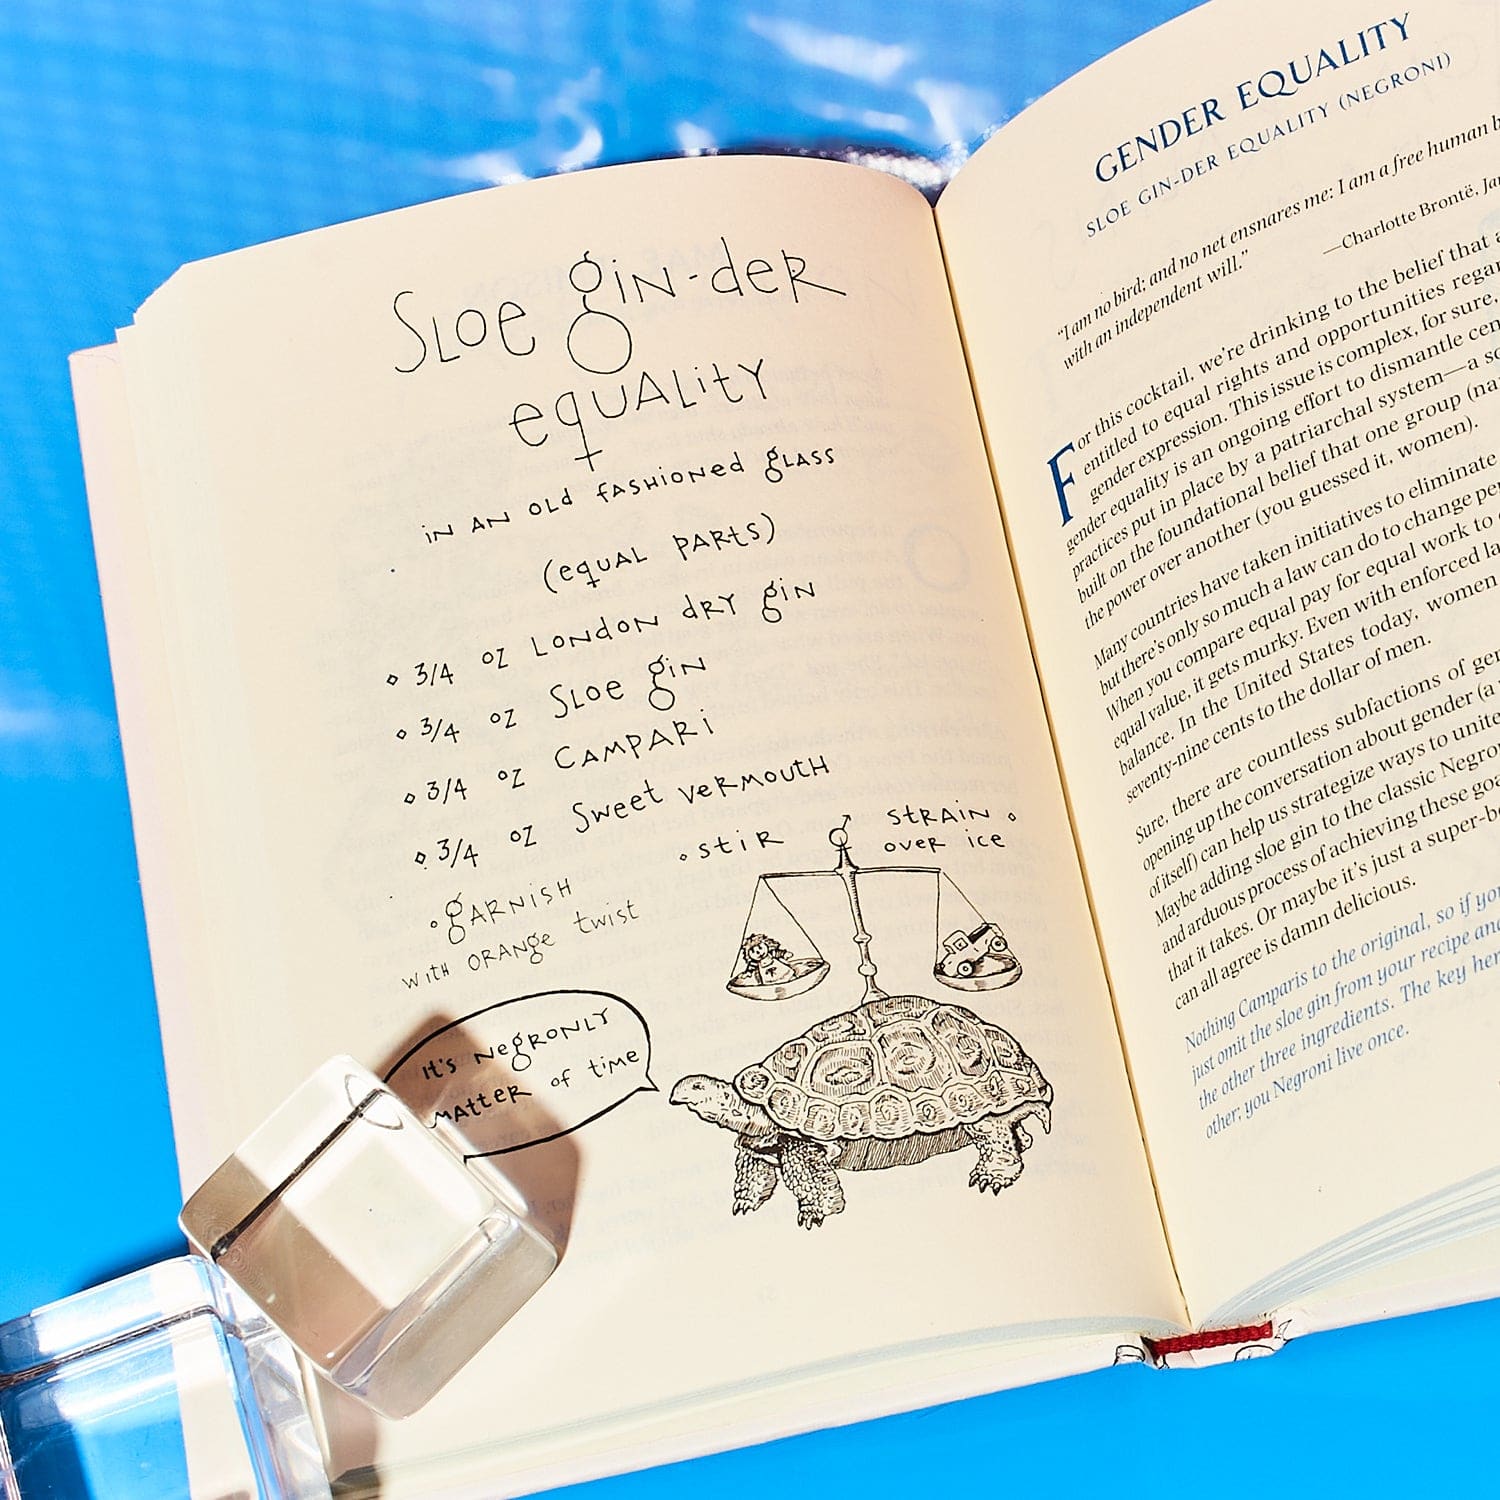 Sloe gin-der
equality
in an old fashioned glass
(equal parts)
◇ 3/4 oz London dry gin
◇ 3/4 oz Sloe gin
◇ 3/4 oz Campari
◇ 3/4 oz Sweet vermouth
◦ stir
strain ◦
over ice
◦ garnish
with orange twist
It's Negronly
matter of time
GENDER EQUALITY
SLOE GIN-DER EQUALITY (NEGRONI)
“I am no bird; and no net ensnares me: I am a free human
with an independent will.”
—Charlotte Brontë,
For this cocktail, we’re drinking to the belief that
entitled to equal rights and opportunities
gender expression. This issue is complex, for sure,
gender equality is an ongoing effort to dismantle
practices put in place by a patriarchal system—a
built on the foundational belief that one group
the power over another (you guessed it, women).
Many countries have taken initiatives to eliminate
but there’s only so much a law can do to change
When you compare equal pay for equal work to
equal value, it gets murky. Even with enforced
balance. In the United States today, women
seventy-nine cents to the dollar of men.
Sure, there are countless subfactions of
opening up the conversation about gender (a
of itself) can help us strategize ways to unite
Maybe adding sloe gin to the classic
and arduous process of achieving these
that it takes. Or maybe it’s just a
can all agree is damn delicious.
Nothing Camparis to the original, so if
just omit the sloe gin from your recipe and
the other three ingredients. The key
other; you Negroni live once.